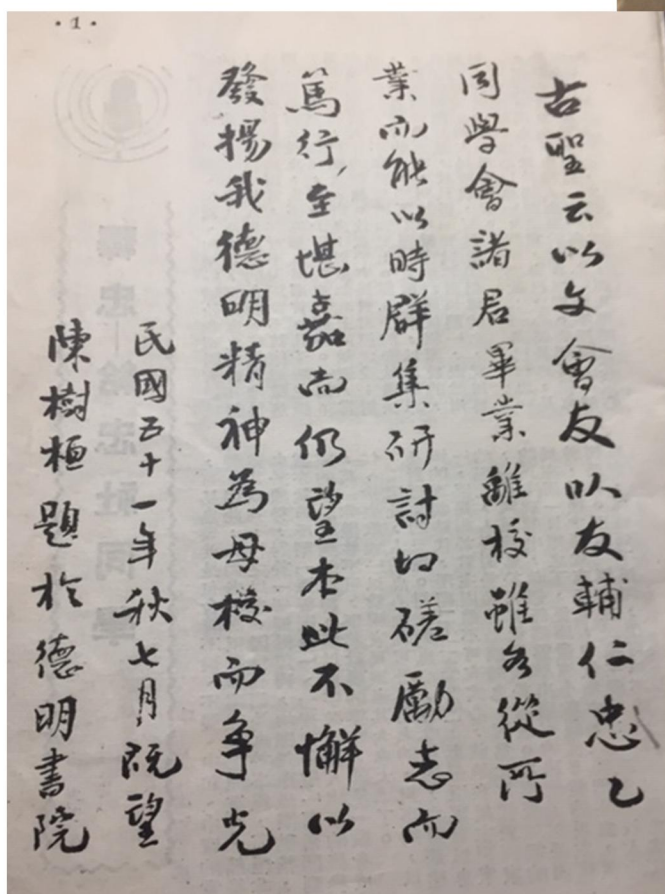 ·1·
古聖云以文會友以友輔仁忠乙
同學會諸君畢業離校雖各從所
業而能以時群集研討切磋勵志而
篤行至堪嘉尚仍望本此不懈以
發揚我德明精神為母校而爭光
民國五十一年秋七月既望
陳樹桓題於德明書院